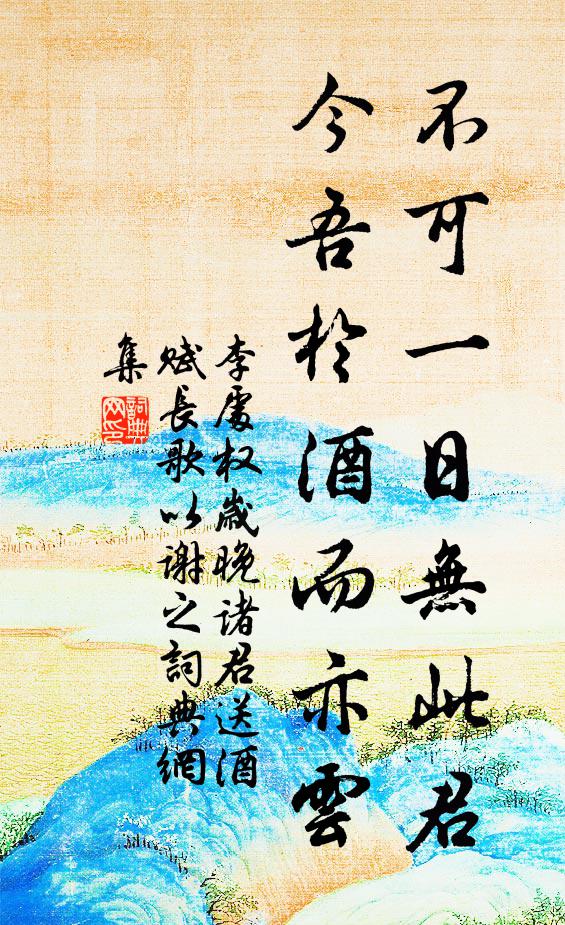 不可一日無此君
今吾於酒而亦雲
李處权歲晚诸君送酒
赋長歌以謝之詞典網
集
詞典
网印